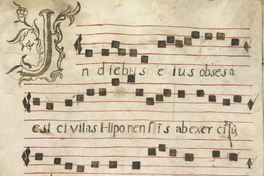 In diebus eius obsesa
est civitas Hiponensis ab exerci